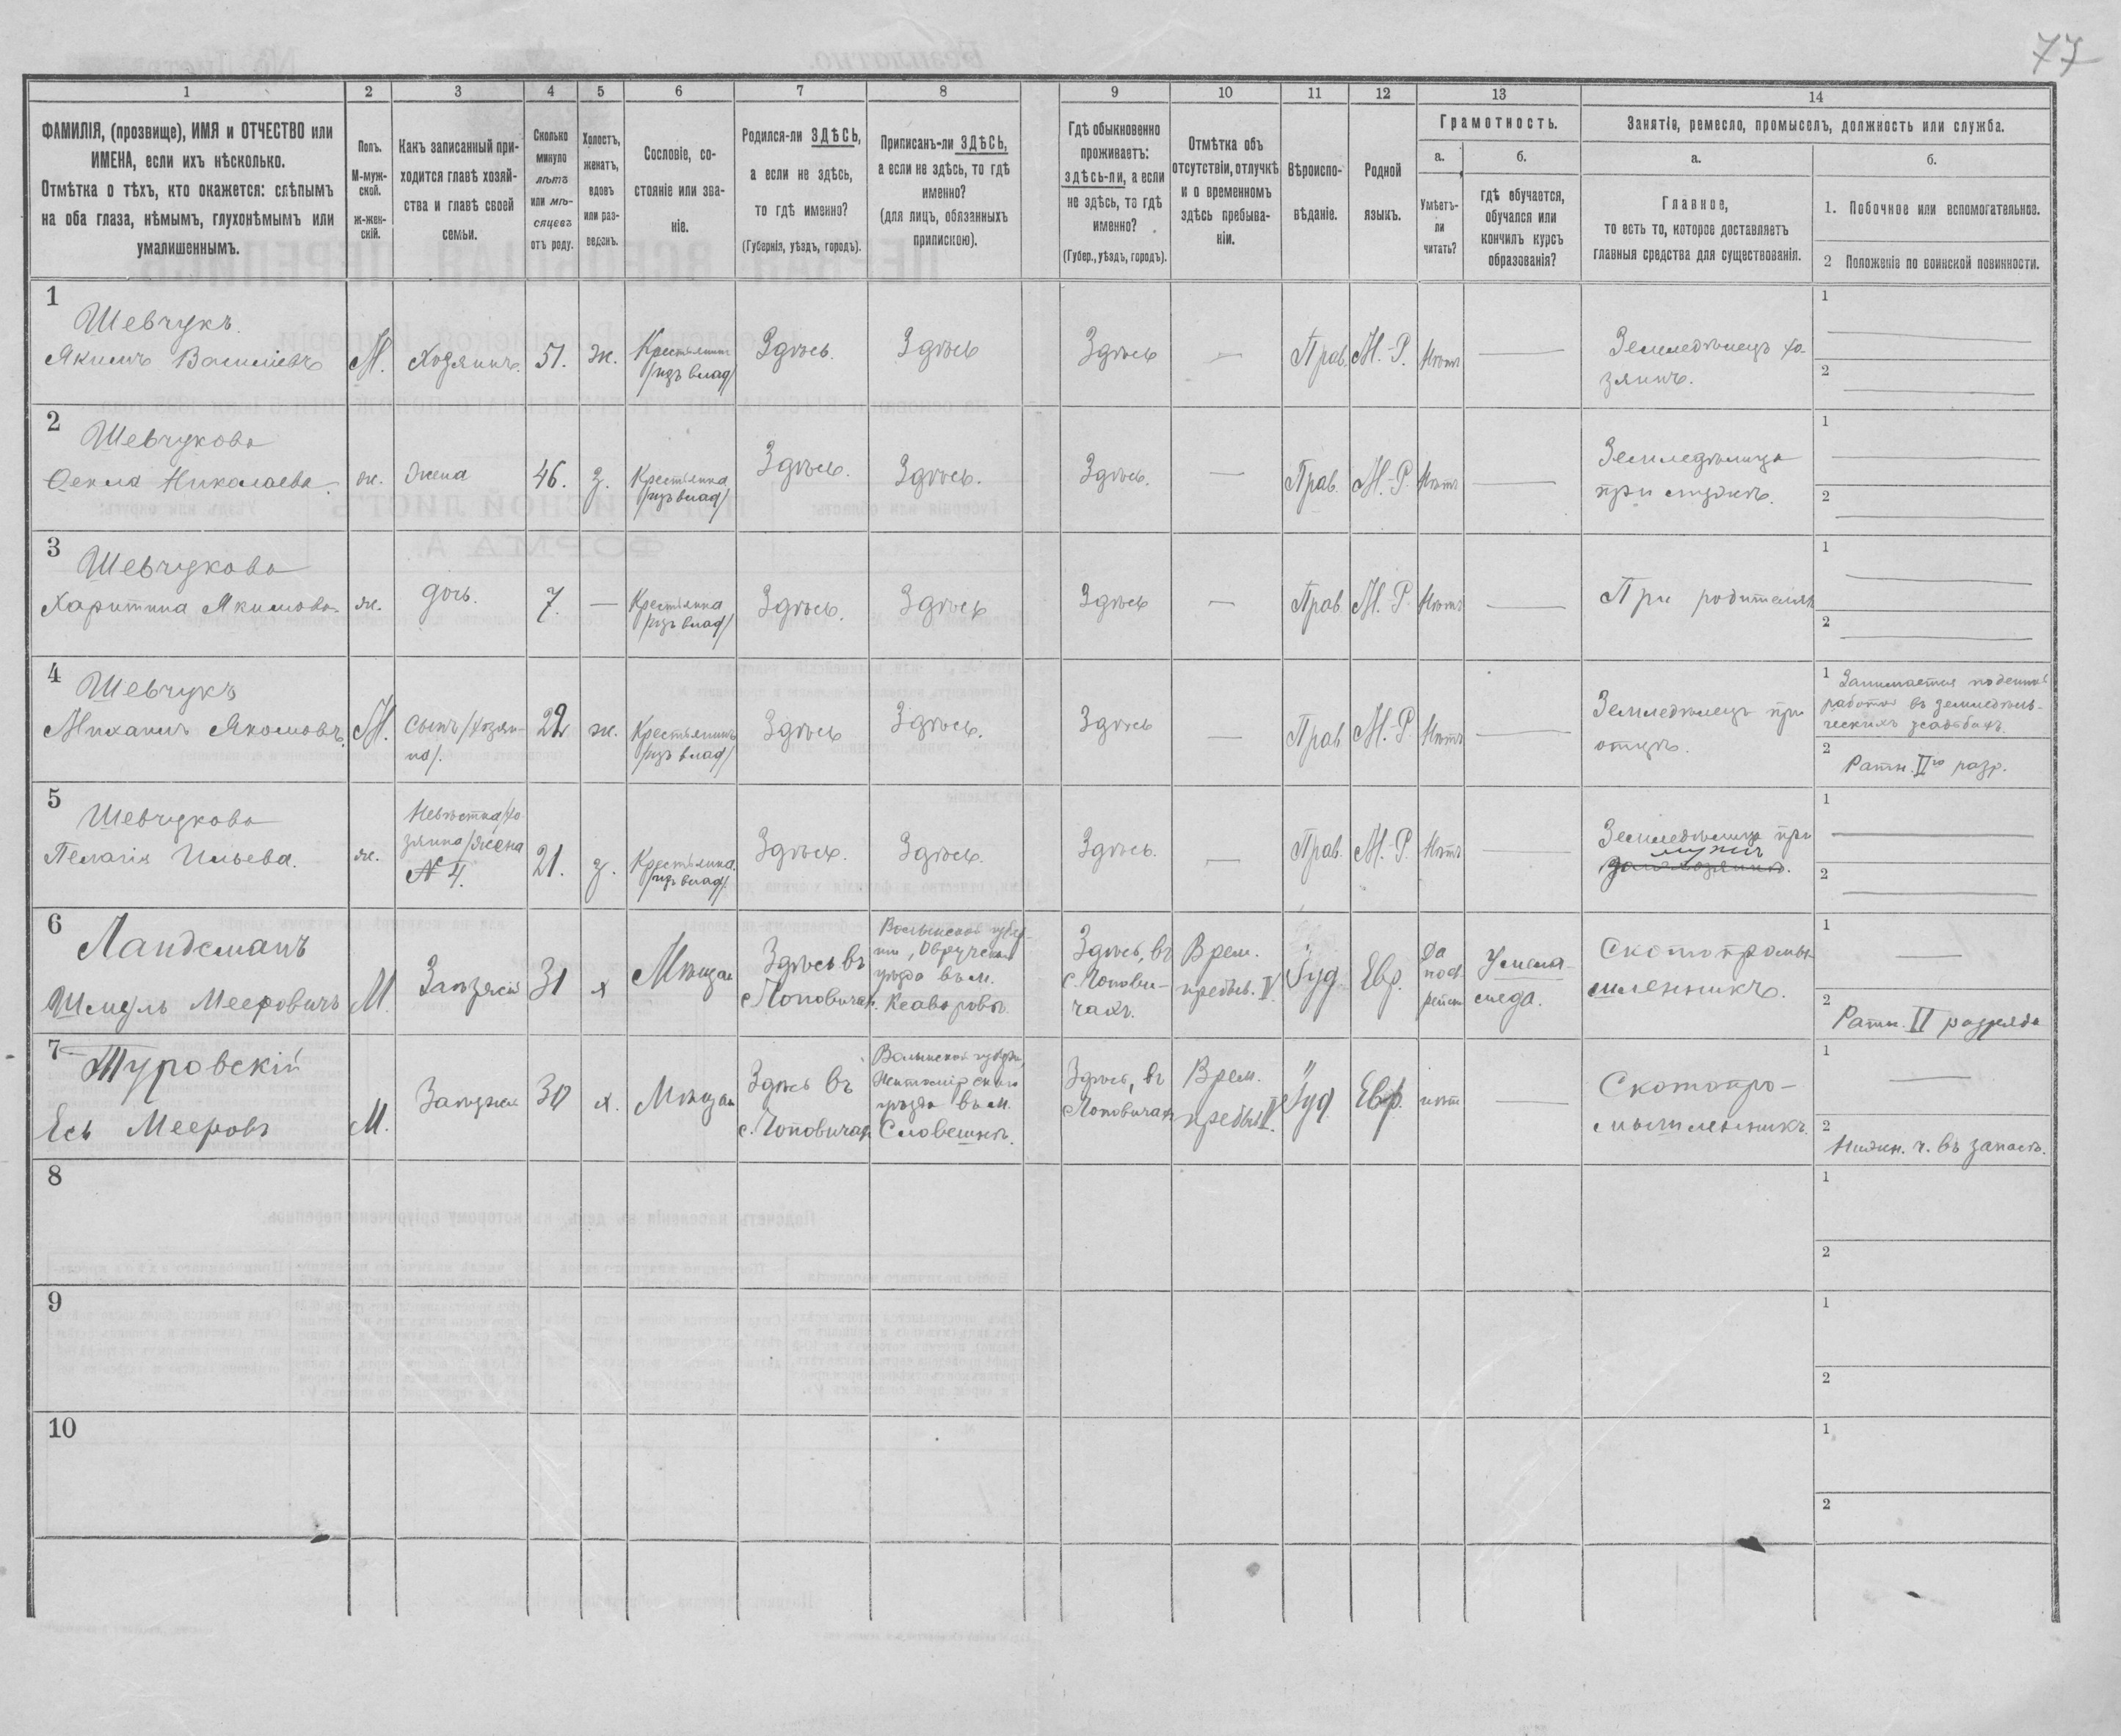 77
1 2 3 4 5 6 7 8 9 10 11 12 13 14
ФАМИЛІЯ, (прозвище), ИМЯ и ОТЧЕСТВО или
ИМЕНА, если ихъ нѣсколько.
Отмѣтка о тѣхъ, кто окажется: слѣпымъ
на оба глаза, нѣмымъ, глухонѣмымъ или
умалишеннымъ.
Полъ.
М-муж-
ской.
ж-жен-
скій.
Какъ записанный при-
ходится главѣ хозяй-
ства и главѣ своей
семьи.
Сколько
минуло
лѣтъ
или мѣ-
сяцевъ
отъ роду.
Холостъ,
женатъ,
вдовъ
или раз-
веденъ.
Сословіе, со-
стояніе или зва-
ніе.
Родился-ли ЗДѢСЬ,
а если не здѣсь,
то гдѣ именно?
(Губернія, уѣздъ, городъ).
Приписанъ-ли ЗДѢСЬ,
а если не здѣсь, то гдѣ
именно?
(для лицъ, обязанныхъ
припискою).
Гдѣ обыкновенно
проживаетъ:
здѣсь-ли, а если
не здѣсь, то гдѣ
именно?
(Губер., уѣздъ, городъ).
Отмѣтка объ
отсутствіи, отлучкѣ
и о временномъ
здѣсь пребыва-
ніи.
Вѣроиспо-
вѣданіе.
Родной
языкъ.
Грамотность.
а.
Умѣетъ-
ли
читать?
б.
гдѣ обучается,
обучался или
кончилъ курсъ
образованія?
Занятіе, ремесло, промыселъ, должность или служба.
а.
Главное,
то есть то, которое доставляетъ
главныя средства для существованія.
б.
1. Побочное или вспомогательное.
2 Положеніе по воинской повинности.
1
Шевчукъ
Якимъ Васильевъ
М.
Хозяинъ.
51.
ж.
Крестьянинъ
/изъ влад/
Здѣсь.
Здѣсь
Здѣсь
—
Прав.
М.-Р.
Нѣтъ
—
Земледѣлецъ хо-
зяинъ.
1 —
2 —
2
Шевчукова
Ѳекла Николаева.
ж.
Жена
46.
з.
Крестьянка
/изъ влад/
Здѣсь.
Здѣсь.
Здѣсь.
—
Прав.
М.-Р.
Нѣтъ
—
Земледѣлица
при мужѣ.
1 —
2 —
3
Шевчукова
Харитина Якимова
ж.
дочь.
7.
—
Крестьянка
/изъ влад/
Здѣсь.
Здѣсь
Здѣсь
—
Прав
М.-Р.
Нѣтъ
—
При родителях
1 —
2 —
4
Шевчукъ
Михаилъ Якимовъ.
М.
Сынъ /хозяи-
на/.
22
ж.
Крестьянинъ
/изъ влад/
Здѣсь
Здѣсь.
Здѣсь
—
Прав
М.-Р.
Нѣтъ
—
Земледѣлецъ при
отцѣ.
1 Занимается поденной
работой въ земледѣль-
ческихъ усадьбахъ.
2 Ратн. IIго разр.
5
Шевчукова
Пелагія Ильева.
ж.
Невѣстка/хо-
зяина/жена
№ 4.
21.
з.
Крестьянка.
/изъ влад/
Здѣсь.
Здѣсь.
Здѣсь.
—
Прав.
М.-Р.
Нѣтъ
—
Земледѣлица при
мужѣ
1 —
2 —
6
Ландсманъ
Шмуль Мееровичъ
М.
Заѣзжій
31
х
Мѣщан
Здѣсь въ
с. Поповичах.
Волынской губер-
ніи, Овручскаго
уѣзда въ м.
Здѣсь, въ
с. Попови-
чахъ.
Врем.
пребыв.
Іуд.
Евр.
Да
У мела-
меда.
Скотопромы-
шленникъ.
1 —
2 Ратн. II разряда
7
Туровскій
Есь Мееровъ
М.
Заѣзжій
30
х.
Мѣщан
Здѣсь въ
с. Поповичах
Волынской губерніи,
Житомірскаго
уѣзда въ м.
Словешнѣ.
Здѣсь, въ
Поповичах
Врем.
пребыв.
Іуд
Евр.
нѣтъ
—
Скотопро-
мышленникъ.
1 —
2 Нижн. ч. въ запасѣ.
8
1
2
9
1
2
10
1
2